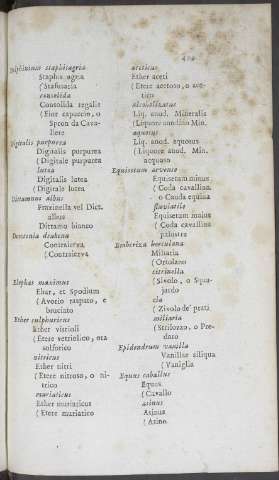 Delphinium staphisagria
Staphis agria
( Stafusaria
consolida
Consolida regalis
( Fior cappuccio, o
Spron da Cava-
liere
Digitalis purpurea
Digitalis purpurea
( Digitale purpurea
lutea
Digitalis lutea
( Digitale lutea
Dictamnus albus
Fraxinella vel Dict.
albus
Dittamo bianco
Dorstenia drakena
Contraierva
( Contraierva
Elephas maximus
Ebur, et Spodium
( Avorio raspato, e
bruciato
Ether sulphuricus
Ether vitrioli
( Etere vetriolico, o
solforico
nitricus
Ether nitri
( Etere nitroso, o ni-
trico
muriaticus
Ether muriaticus
( Etere muriatico
aceticus
Ether aceti
( Etere acetoso, o ace-
tico
alcoholizatus
Liq. anod. Mineralis
( Liquore anodino Min.
aquosus
Liq. anod. aquosus
( Liquore anod. Min.
acquoso
Equisetum arvense
Equisetum minus
( Coda cavallina,
o Cauda equina
fluviatile
Equisetum maius
( Coda cavallina
palustre
Emberiza hortulana
Miliaria
( Ortolano
citrinella
( Sivolo, o Squa-
jardo
cia
( Zivolo de' prati
miliaria
( Strillozzo, o Pre-
dero
Epidendrum vanilla
Vanillae siliqua
( Vaniglia
Equus caballus
Equus
( Cavallo
asinus
Asinus
( Asino